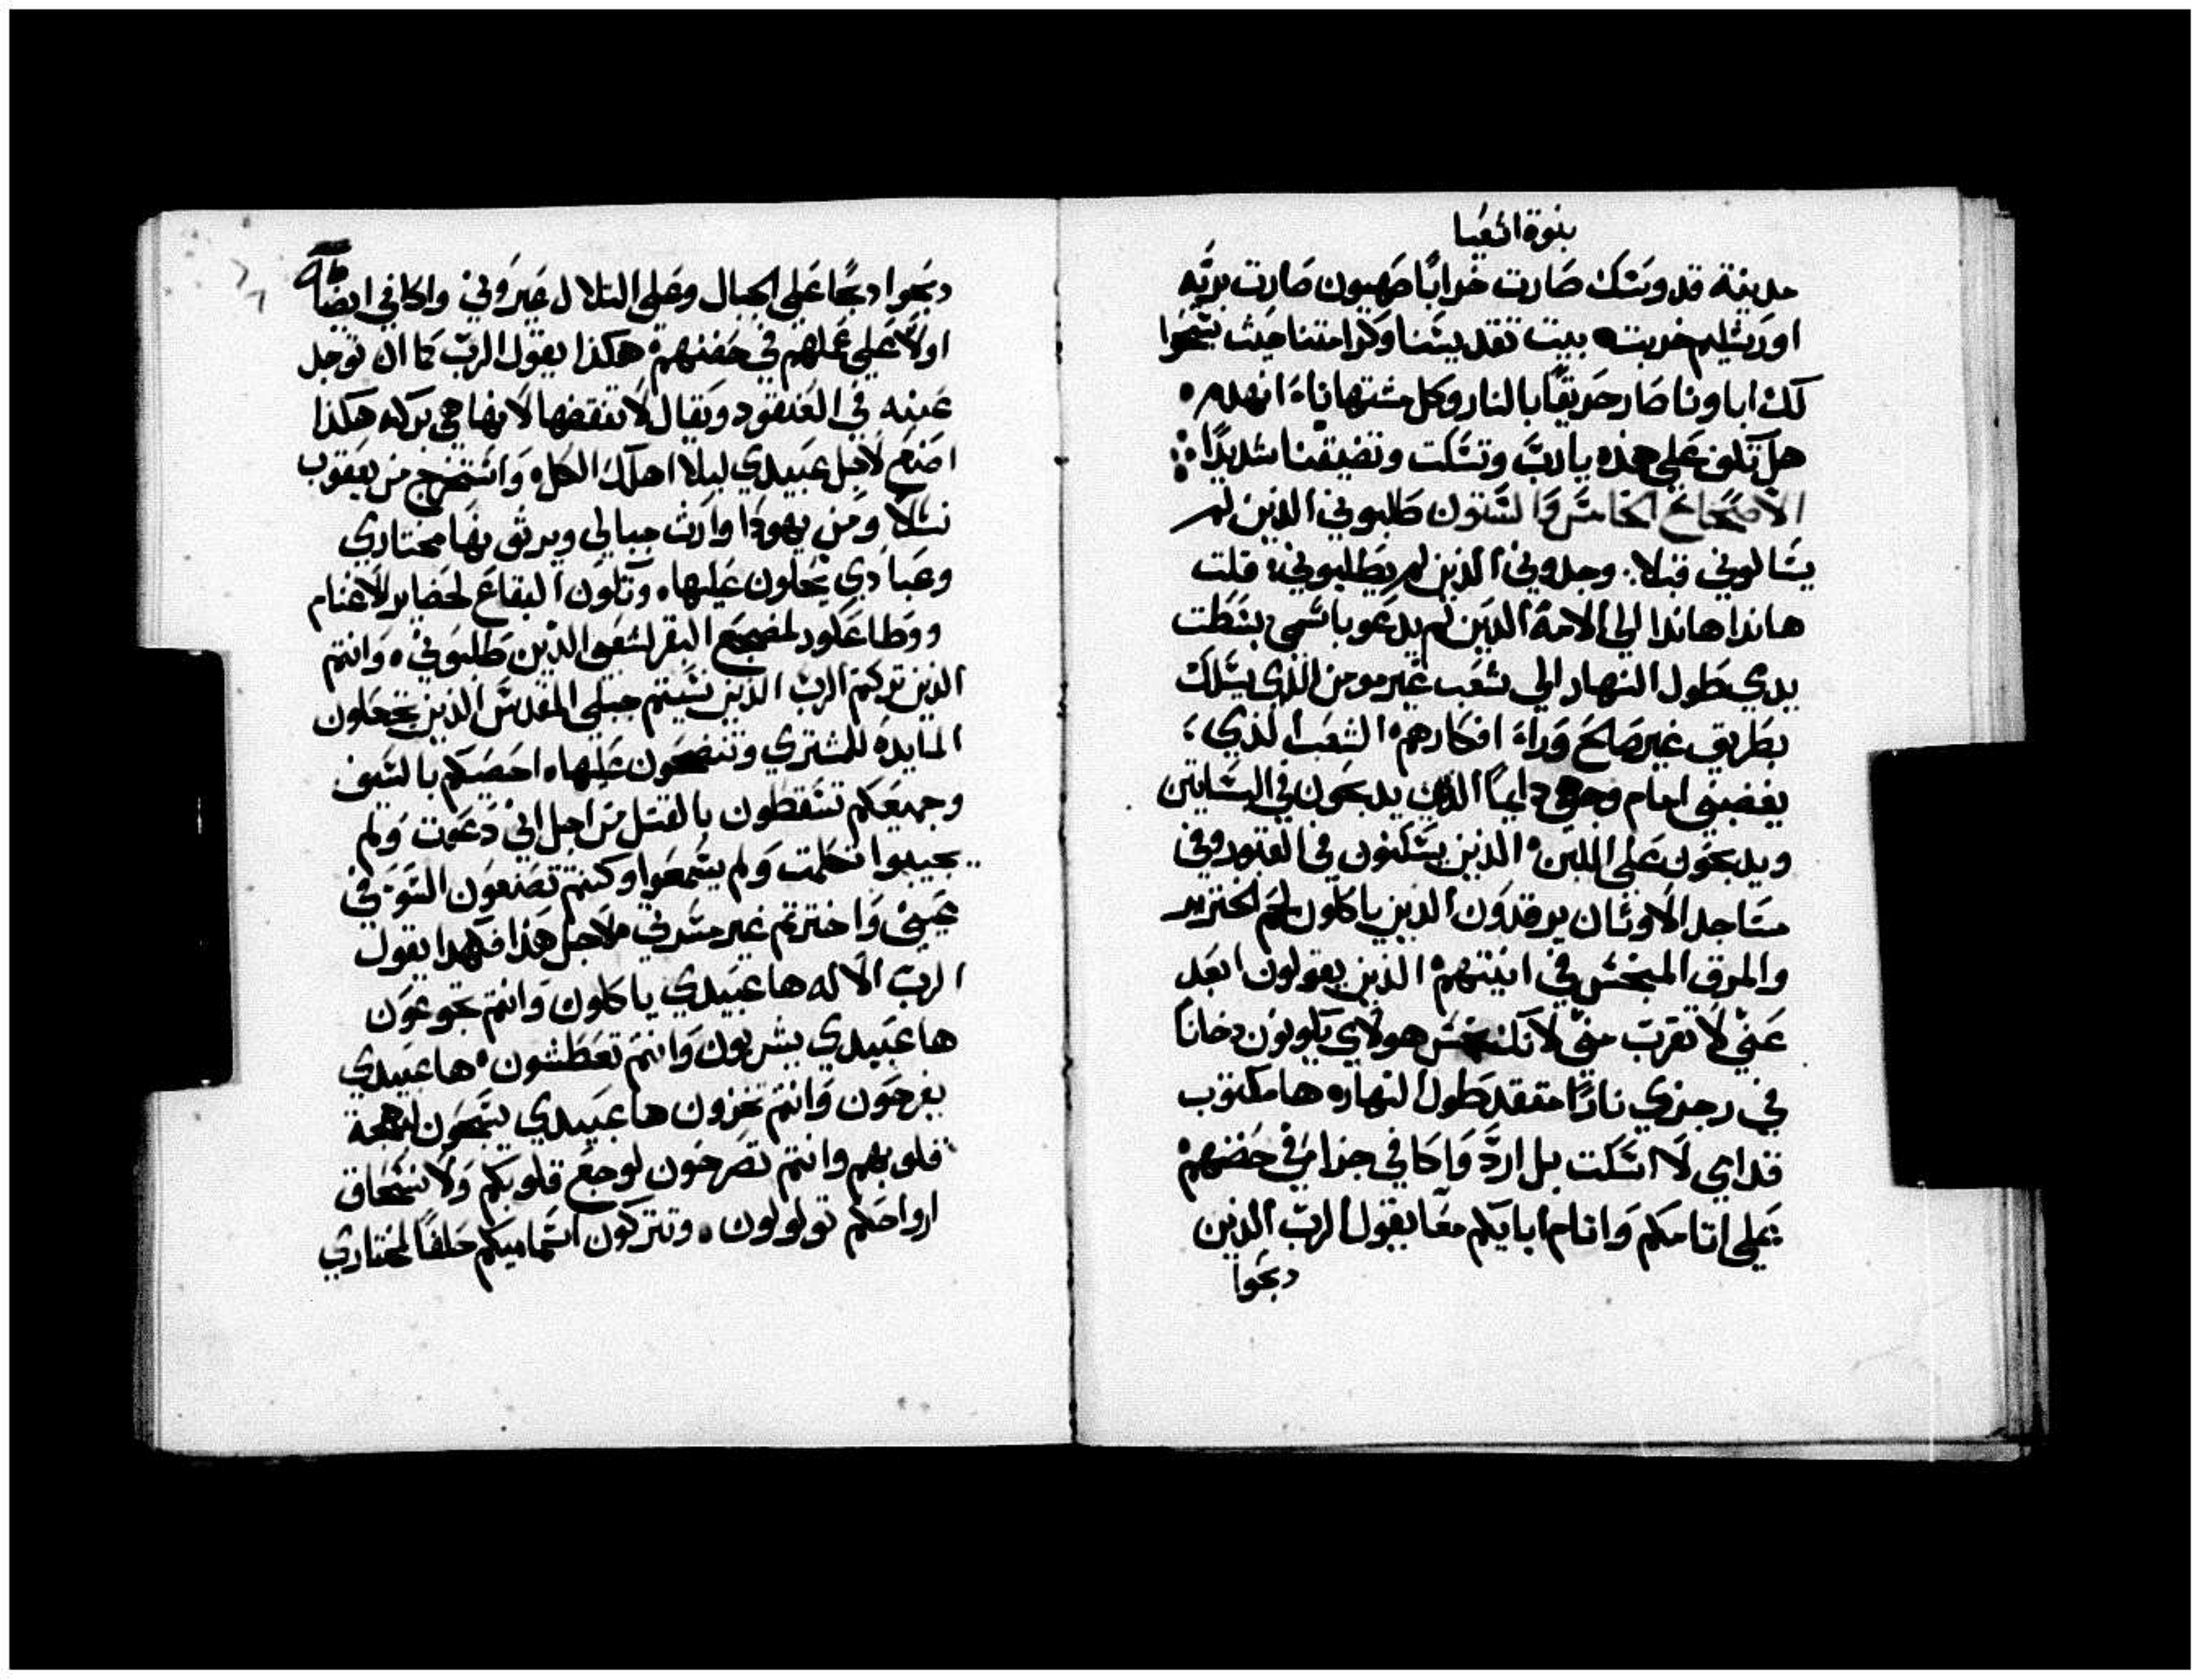 بنوة اشعيا
مدينة قدوسك صارت خرابًا صهيون صارت بريه
اورشليم خربت بيت تقديسنا وكرامتنا حيث سبحوا
لك اباونا صار حريقًا بالنار وكل مشتهاناة انهدم
هل تكف علي هذه يارب وتسكت وتضيقنا شديدًا
الاصحاح الخامس والستون طلبوني الذين لم
يسالوني قبلا وجدوني الذين لم يطلبوني قلت
هاندا هاندا الي الامة الدين لم يدعو باسمي بسطت
يدي طول النهار الي شعب غير مومن الذي يسلك
بطريق غير صالح وراء افكارهم الشعب الذي
يغضبني امام وجهي دايمًا الذين يدبحون في البساتين
ويدبحون علي اللبن الذين يسكنون في القبور وفي
مساجد الاوثان يرقدون الدين ياكلون لحم الخنزير
والمرق المنجس في انيتهم الذين يقولون ابعد
عني لا تقرب مني لانك نجس هولاي يكونون دخانًا
في رجزي نارًا متقد طول النهار ها مكتوب
قدامي لا اسكت بل ارد واكافي جزا في حضنهم
علي اتامكم واتام ابايكم معًا يقول الرب الدين
دبحوا
دبحوا دبحًا علي الجبال وعلي التلال عيروني واكافي ايضًا
اولا علي عملهم في حضنهم هكذا يقول الرب كما ان توجد
عنبه في العنقود ويقال لا تنقضها لانها هي بركه هكذا
اصنع لاجل عبيدي ليلا اهلك الكل واستخرج من يعقوب
نسلًا ومن يهودا وارث جبالي ويرثونها مختاري
وعبادي يحلون عليها وتكون البقاع لحضاير للاغنام
ووطا عكور لمضجع البقر لشعبي الدين طلبوني وانتم
الدين تركتم الرب الدين نسيتم جبلي المقدس الدين تجعلون
المايدة للمشتري وتنضحون عليها احصيكم بالسيف
وجميعكم تسقطون بالقتل من اجل اني دعوت ولم
تجيبوا تكلمت ولم يسمعوا وكنتم تصنعون السو في
عيني واخترتم غير مسرتي ملاجل هذا فهكدا يقول
الرب الاله ها عبيدي ياكلون وانتم تجوعون
ها عبيدي يشربون وانتم تعطشون ها عبيدي
يفرحون وانتم تخزون ها عبيدي يسبحون لبهجة
قلوبهم وانتم تصرخون لوجع قلوبكم ولانسحاق
ارواحكم تولولون وتتركون اسماميكم حلفًا لمختاري